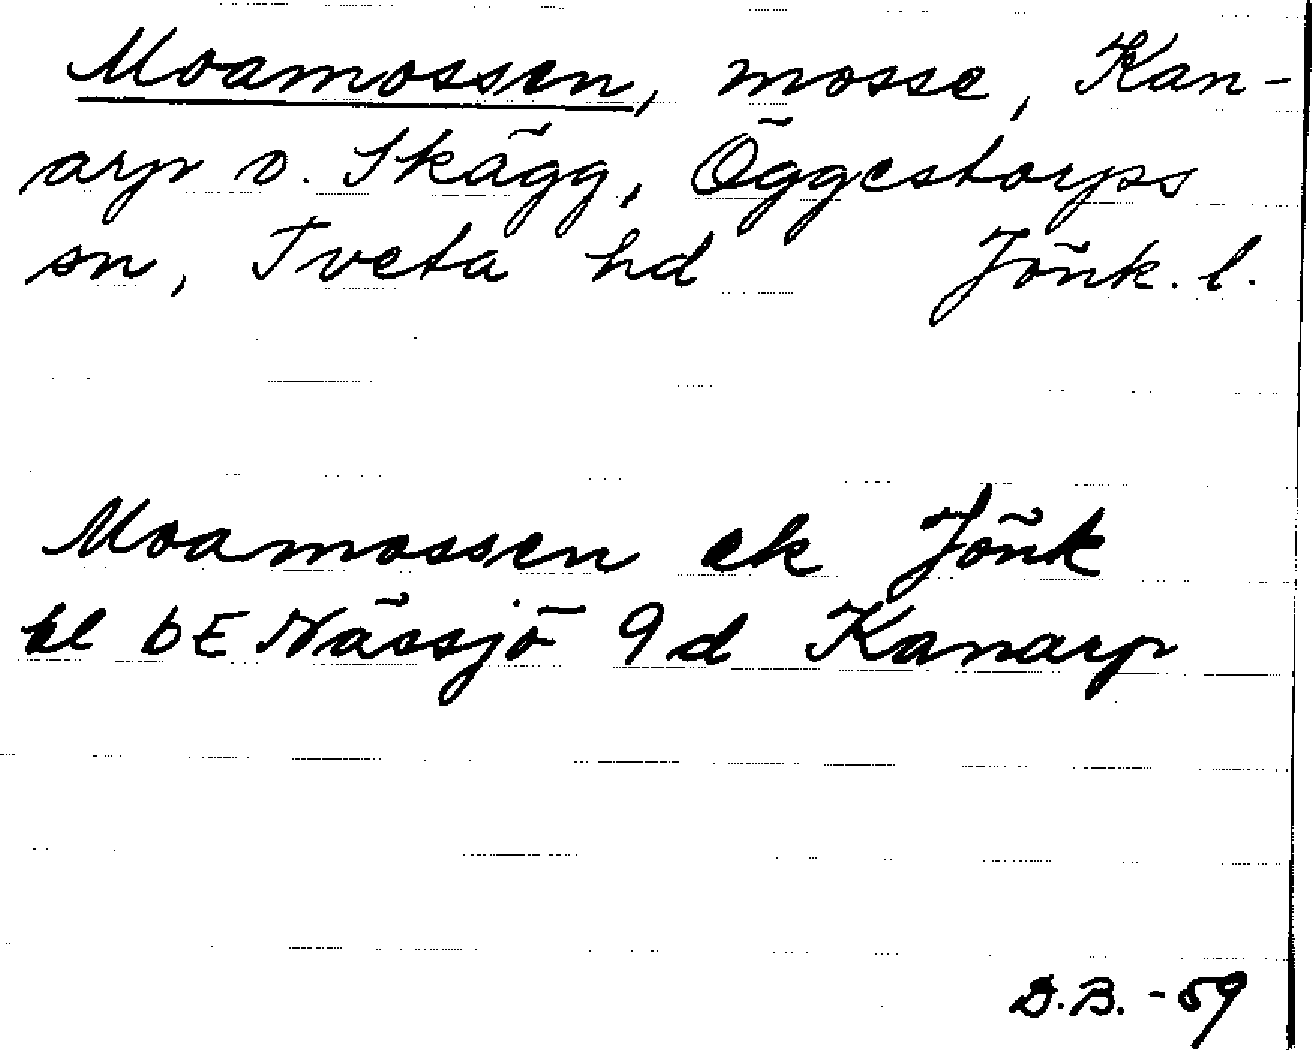 Moamossen, mosse, Kan-
arp o. Skägg, Öggestorps
sn, Tveta hd Jönk. l.
Moamossen ek Jönk
bl 6E Nässjö 9d Kanarp
D.B. -59